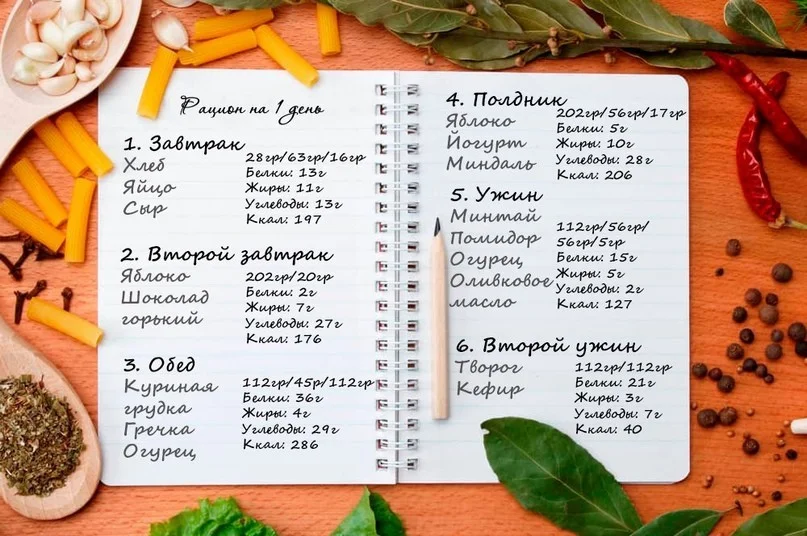 Рацион на 1 день
1. Завтрак
Хлеб
Яйцо
Сыр
28гр/63гр/16гр
Белки: 13г
Жиры: 11г
Углеводы: 13г
Ккал: 197
2. Второй завтрак
Яблоко
Шоколад
горький
202гр/20гр
Белки: 2г
Жиры: 7г
Углеводы: 27г
Ккал: 176
3. Обед
Куриная
грудка
Гречка
Огурец
112гр/45р/112гр
Белки: 36г
Жиры: 4г
Углеводы: 29г
Ккал: 286
4. Полдник
Яблоко
Йогурт
Миндаль
202гр/56гр/17гр
Белки: 5г
Жиры: 10г
Углеводы: 28г
Ккал: 206
5. Ужин
Минтай
Помидор
Огурец
Оливковое
масло
112гр/56гр/
56гр/5гр
Белки: 15г
Жиры: 5г
Углеводы: 2г
Ккал: 127
6. Второй ужин
Творог
Кефир
112гр/112гр
Белки: 21г
Жиры: 3г
Углеводы: 7г
Ккал: 40